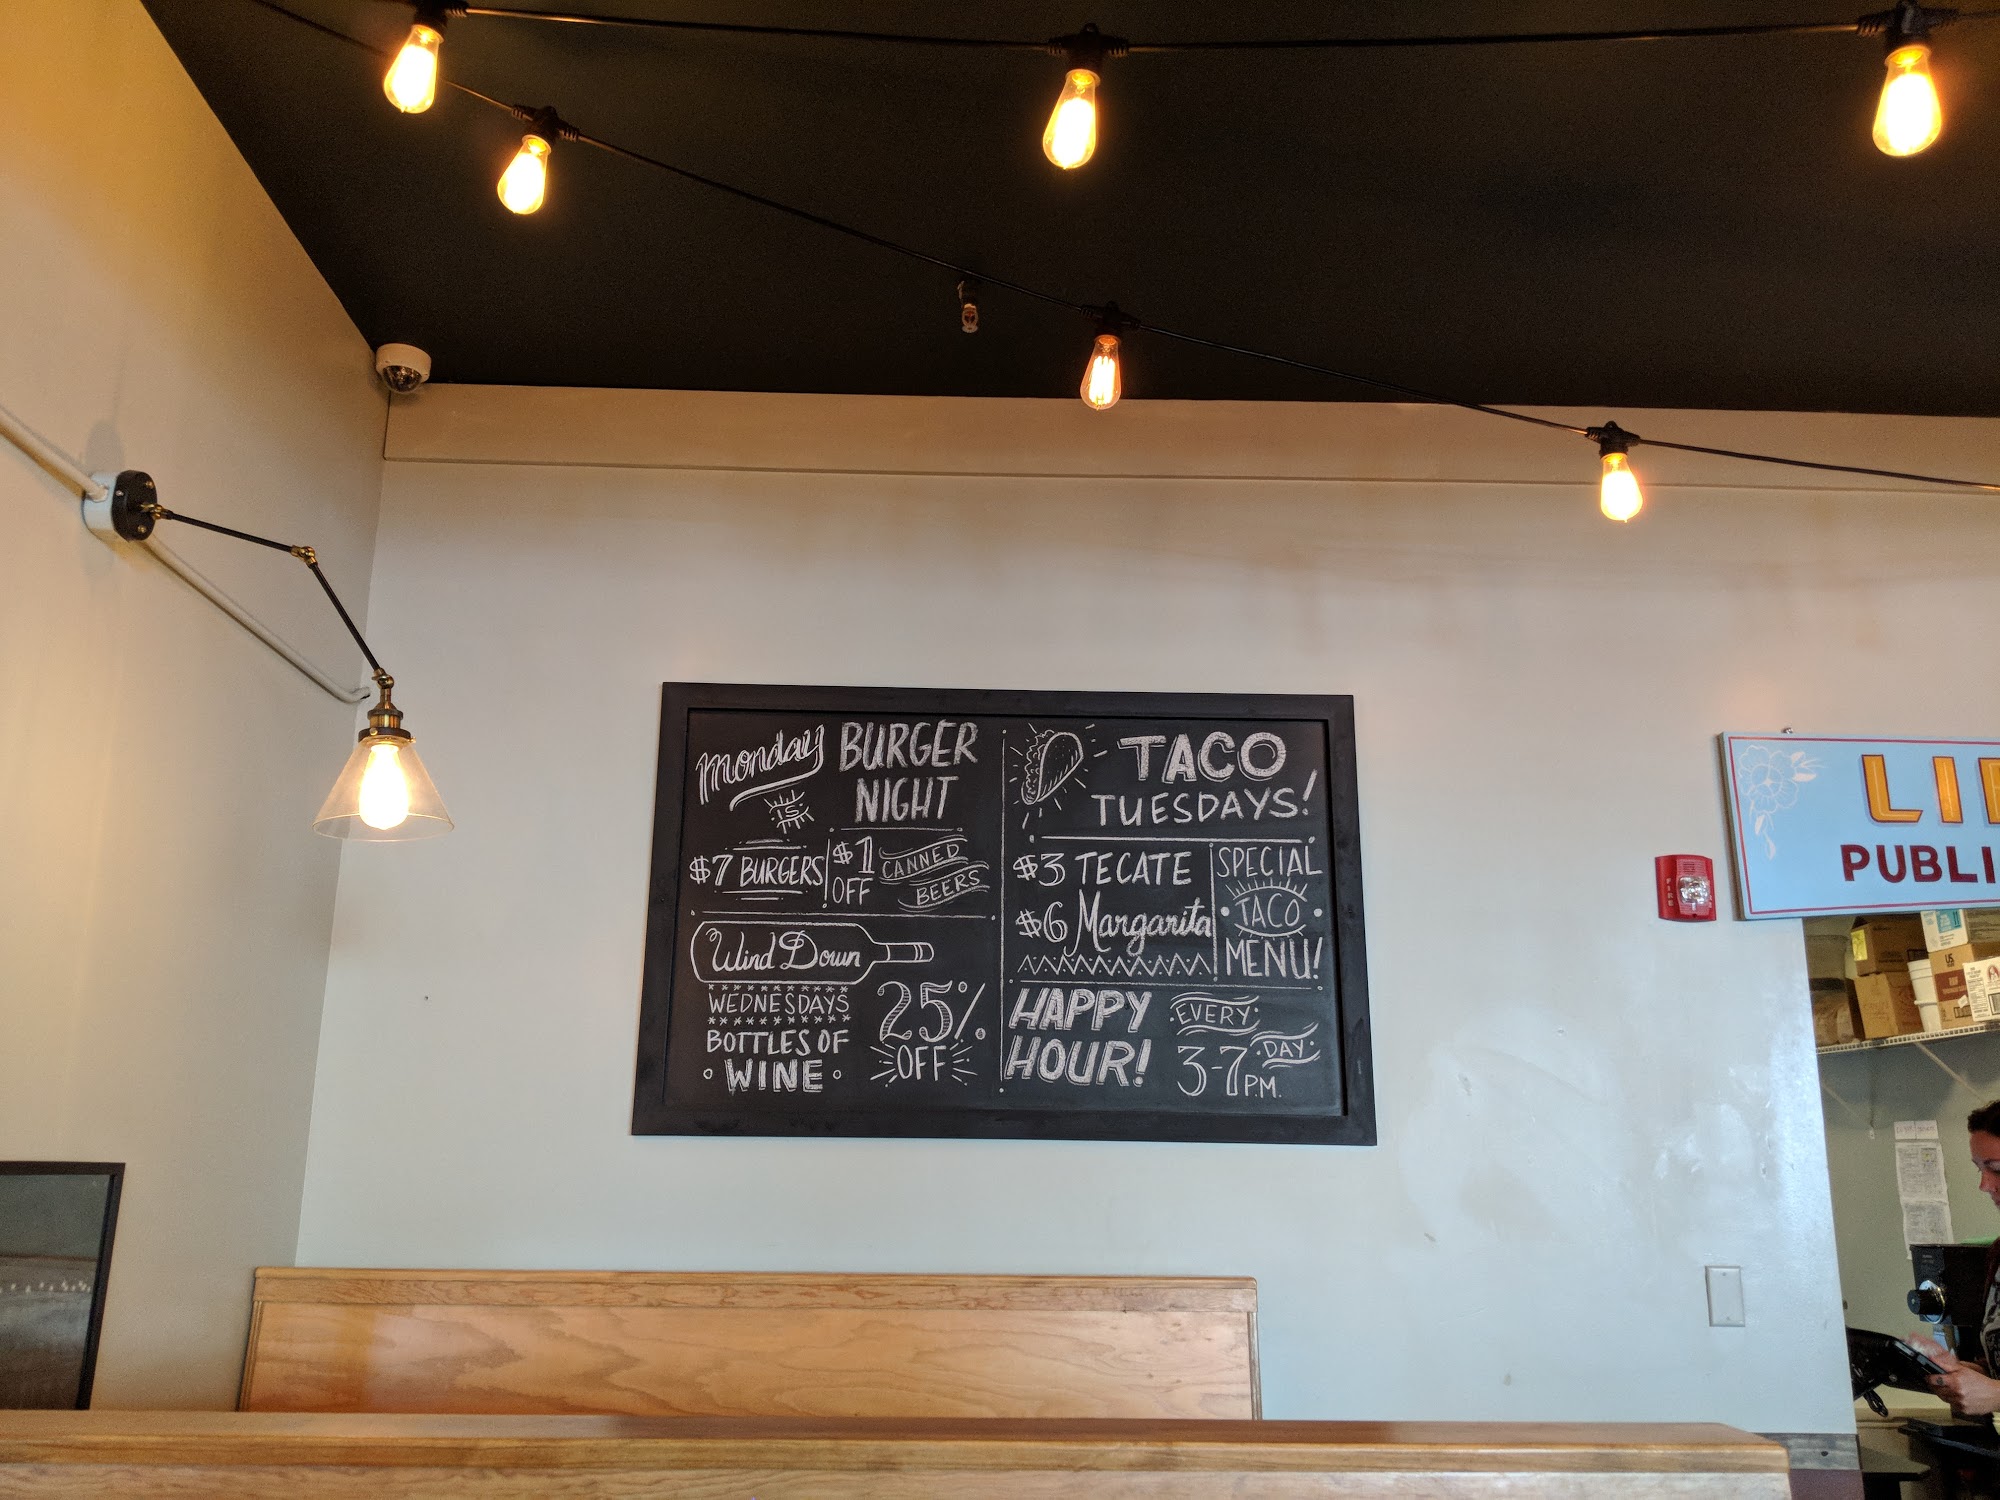 Monday
IS
BURGER
NIGHT
$7 BURGERS
$1
OFF
CANNED
BEERS
Wind Down
WEDNESDAYS
BOTTLES OF
WINE
25%
OFF
TACO
TUESDAYS!
$3 TECATE
$6 Margarita
SPECIAL
TACO
MENU!
HAPPY
HOUR!
EVERY
DAY
3-7 P.M.
PUBLI
FIRE